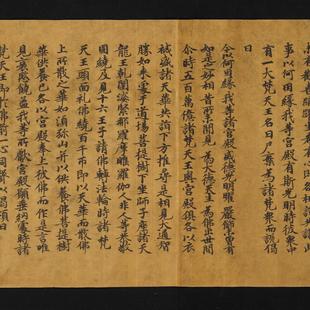 即各相詣共議此
事以何因緣我等宮殿有斯光明時彼衆中
有一大梵天王名曰尸棄為諸梵衆而說偈
曰
今以何因緣 我等諸宮殿 威德光明曜 嚴飾未曾有
如是之妙相 昔所未聞見 為大德天生 為佛出世間
尒時五百万億諸梵天王與宮殿俱各以衣
祴盛諸天華共詣下方推尋是相見大通智
勝如來處于道場菩提樹下坐師子座諸天
龍王乾闥婆緊那羅摩睺羅伽人非人等恭敬
圍繞及見十六王子請佛轉法輪時諸梵
天王頭面礼佛繞百千帀即以天華而散佛
上所散之華如須弥山并以供養佛菩提樹
華供養已各以宮殿奉上彼佛而作是言唯
見哀愍饒益我等所獻宮殿願垂納處時諸
梵天王即於佛前一心同聲以偈頌曰